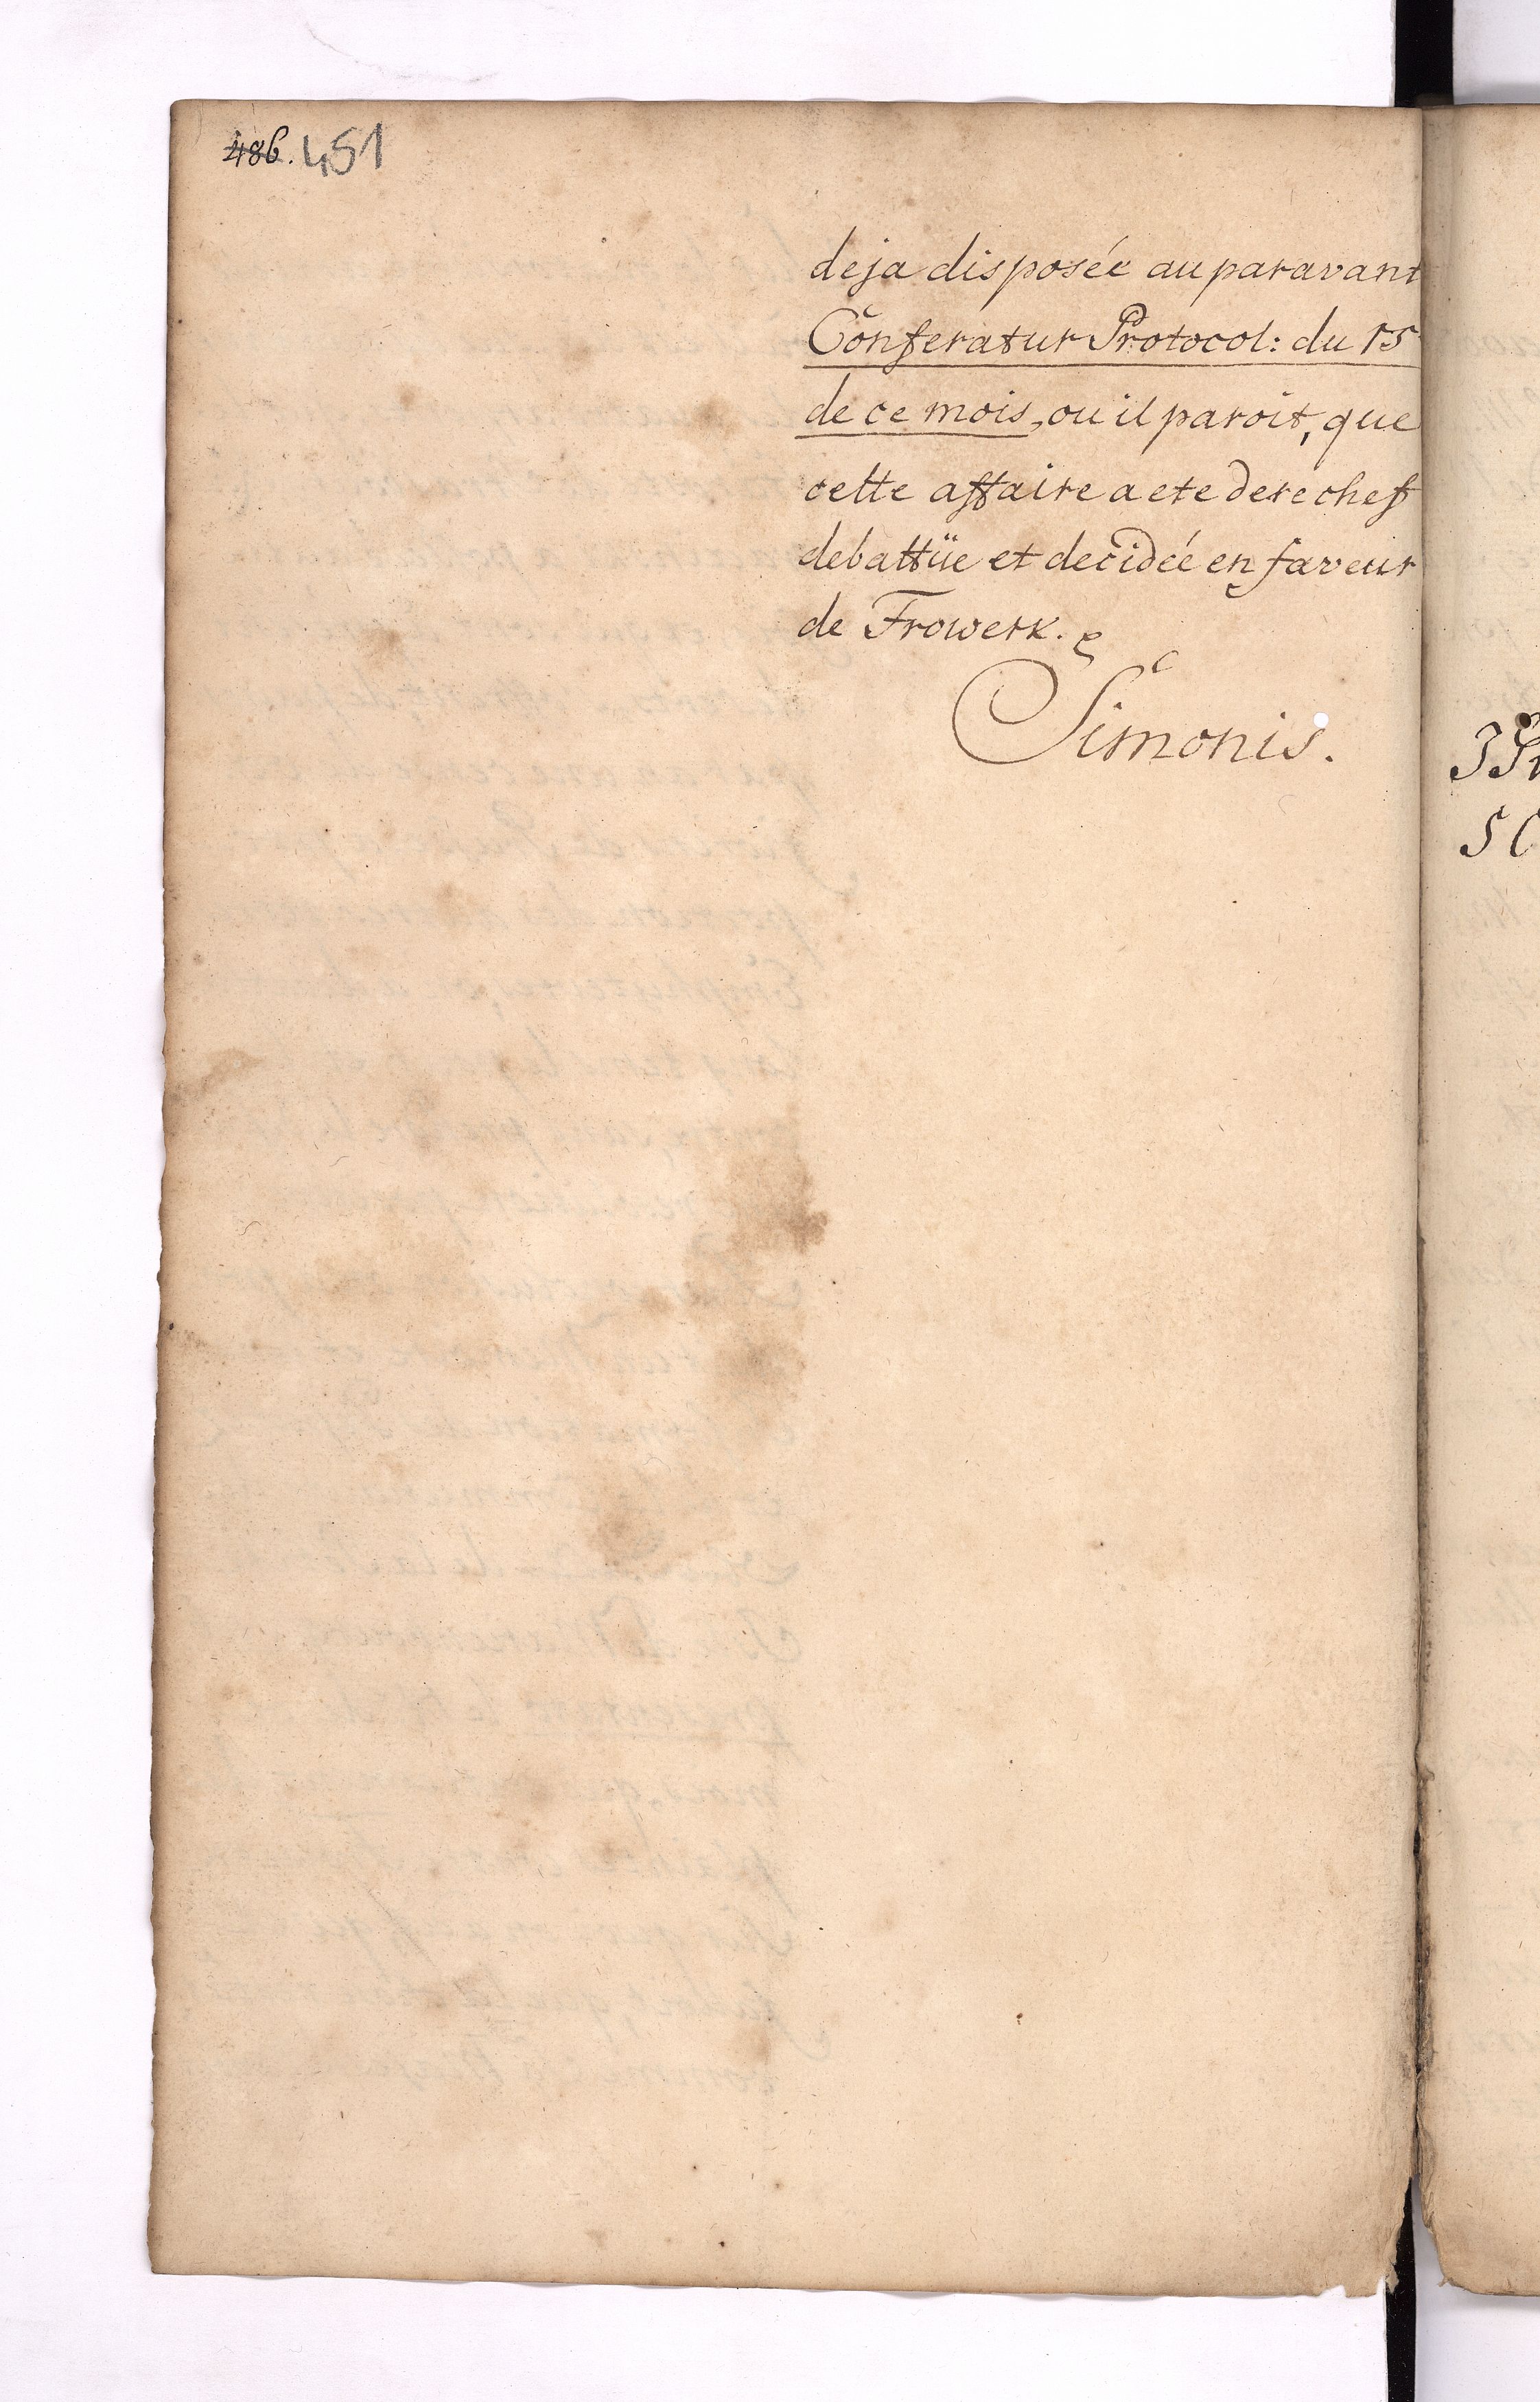 486. 451
deja disposée auparavant
Conferatur Protocol: du 15
de ce mois, ou il paroit, que
cette affaire a ete derechef
debattüe et decidée en faveur
de Frowerk.
Simonis.